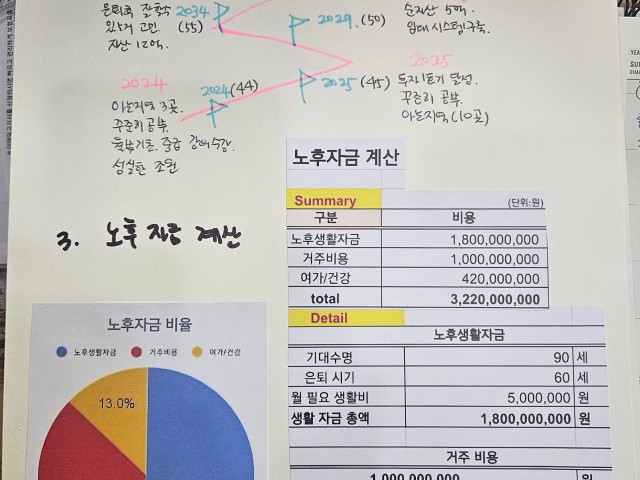 은퇴후 잘할
2034
(55)
있는거 고민
자산 12억.
2029. (50)
순자산 5억.
임대 시스템 구축.
2024
2024 (44)
아는지역 3곳.
꾸준히 공부.
기초. 중급 강의수강.
성실한 조원
2025
2025 (45)
투자 1호기 달성.
꾸준히 공부.
아는지역 (10곳)
3. 노후 자금 계산
노후자금 계산
Summary (단위:원)
구분 비용
노후생활자금 1,800,000,000
거주비용 1,000,000,000
여가/건강 420,000,000
total 3,220,000,000
Detail
노후생활자금
기대수명 90 세
은퇴 시기 60 세
월 필요 생활비 5,000,000 원
생활 자금 총액 1,800,000,000 원
거주 비용
1,000,000,000 원
노후자금 비율
노후생활자금 거주비용 여가/건강
13.0%